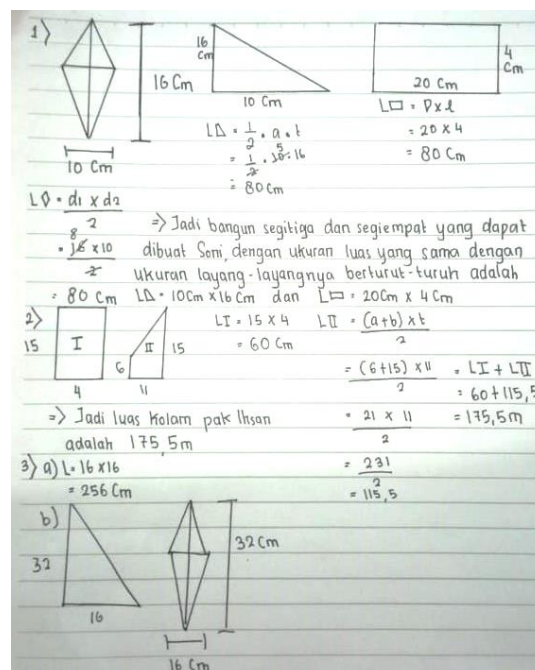 1)
16 Cm
10 Cm
16 Cm
10 Cm
4 Cm
20 Cm
L△ = 1/2 . a . t
= 1/2 . 10 . 16
5
= 80 Cm
L▭ = P x l
= 20 x 4
= 80 Cm
L◊ = d1 x d2
2
8
= 16 x 10
2
= 80 Cm
=> Jadi bangun segitiga dan segiempat yang dapat
dibuat Soni, dengan ukuran luas yang sama dengan
ukuran layang-layangnya berturut-turut adalah
L△ = 10 Cm x 16 Cm dan L▭ = 20 Cm x 4 Cm
2)
15 I
4
6 II 15
11
LI = 15 x 4
= 60 Cm
LII = (a+b) x t
2
= (6+15) x 11
2
= 21 x 11
2
= 231
2
= 115,5
= LI + LII
= 60 + 115,5
= 175,5 m
=> Jadi luas kolam pak Ihsan
adalah 175,5 m
3) a) L = 16 x 16
= 256 Cm
b)
32
16
32 Cm
16 Cm